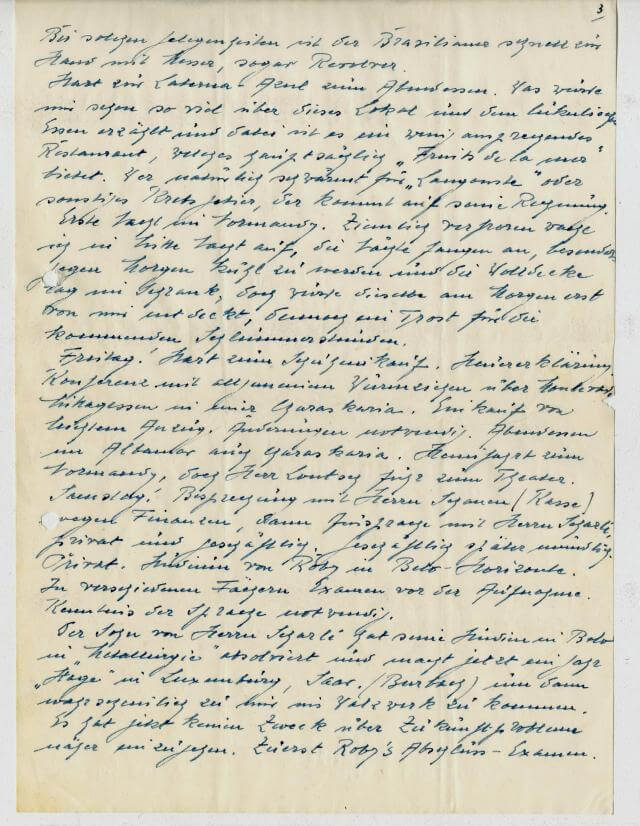 3
Bei solchen Gelegenheiten ist der Brasilianer schnell zur
Hand mit Messer, sogar Revolver.
Start zur Laterna-Azul zum Abendessen. Was wurde
mir schon so viel über dieses Lokal und dem lukulischen
Essen erzählt und dabei ist es ein wenig ansprechendes
Restaurant, welches hauptsächlich "Fruits de la mer"
bietet. Wer natürlich schwärmt für "Langouste" oder
sonstiges Krebsgetier, der kommt auf seine Rechnung.
Erste Nacht im Normandy. Ziemlich verfroren wache
ich in Mitte Nacht auf, die Nächte fangen an, besonders
gegen Morgen kühl zu werden und die Wolldecke
lag im Schrank, doch wurde dieselbe am Morgen erst
von mir entdeckt, dennoch ein Trost für die
kommenden Schlummerstunden.
Freitag! Start zum Schuheinkauf. Steuererklärung
Konferenz mit allgemeinem
Mittagessen in einer Churaskaria. Einkauf von
leichtem Anzug. Änderungen notwendig. Abendessen
im Albamar auch Churaskaria. Heimfahrt zum
Normandy, doch Herr Loutsch fuhr zum Theater.
Samstag! Besprechung mit Herrn Schauen (Kasse)
wegen Finanzen, dann Aussprache mit Herrn Scharlé,
privat und geschäftlich, geschäftlich später mündlich.
Privat. Studium von Roby in Belo-Horizonte.
In verschiedenen Fächern Examen vor der Aufnahme.
Kenntnis der Sprache notwendig.
Der Sohn von Herrn Scharlé hat seine Studien in Belo
in "Metallurgie" absolviert und macht jetzt ein Jahr
"Stage" in Luxemburg, Saar. (Burbach) um dann
wahrscheinlich zu mir ins Walzwerk zu kommen.
Es hat jetzt keinen Zweck über Zukunftsproblem
näher einzugehen. Zuerst Roby's Abschluss-Examen.